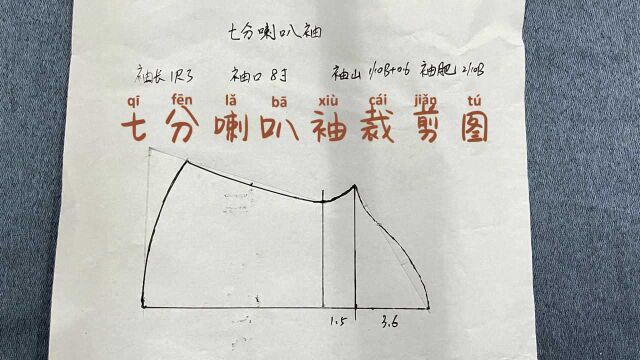 七分喇叭袖
袖长1尺3 袖口8寸 袖山1/10B+0.6 袖肥2/10B
qī fēn lǎ bā xiù cái jiǎn tú
七分喇叭袖裁剪图
1.5 3.6